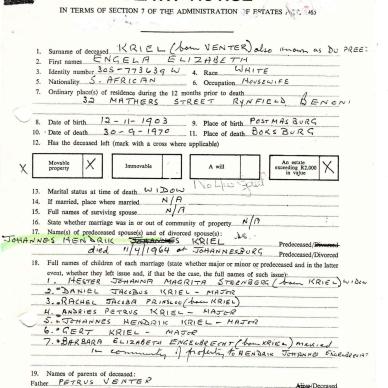 IN TERMS OF SECTION 7 OF THE ADMINISTRATION OF ESTATES
1. Surname of deceased KRIEL (born VENTER) also known as DU PREEZ
2. First names ENGELA ELIZABETH
3. Identity number 305-773639 W 4. Race WHITE
5. Nationality S. AFRICAN 6. Occupation HOUSEWIFE
7. Ordinary place(s) of residence during the 12 months prior to death
32 MATHERS STREET RYNFIELD BENONI
8. Date of birth 12-11-1903 9. Place of birth POSTMASBURG
10. Date of death 30-9-1970 11. Place of death BOKSBURG
12. Has the deceased left (mark with a cross where applicable)
X Movable property X Immovable A will An estate exceeding R2,000 in value X
13. Marital status at time of death WIDOW
14. If married, place where married N/A
15. Full names of surviving spouse N/A
16. State whether marriage was in or out of community of property N/A
17. Name(s) of predeceased spouse(s) and divorced spouse(s):
JOHANNES HENDRIK KRIEL Predeceased/Divorced
died 11/4/1964 at JOHANNESBURG Predeceased/Divorced
18. Full names of children of each marriage (state whether major or minor or predeceased and in the latter
event, whether they left issue and, if that be the case, the full names of such issue):
1. HESTER JOHANNA MAGRITA STEENBERG (born KRIEL) WIDOW
2. DANIEL JACOBUS KRIEL - MAJOR
3. RACHEL JACOBA PRINSLOO (born KRIEL)
4. ANDRIES PETRUS KRIEL - MAJOR
5. JOHANNES HENDRIK KRIEL - MAJOR
6. GERT KRIEL - MAJOR
7. BARBARA ELIZABETH ENGELBRECHT (born KRIEL) married
in community of property to HENDRIK JOHANNES ENGELBRECHT
19. Names of parents of deceased:
Father PETRUS VENTER Alive/Deceased